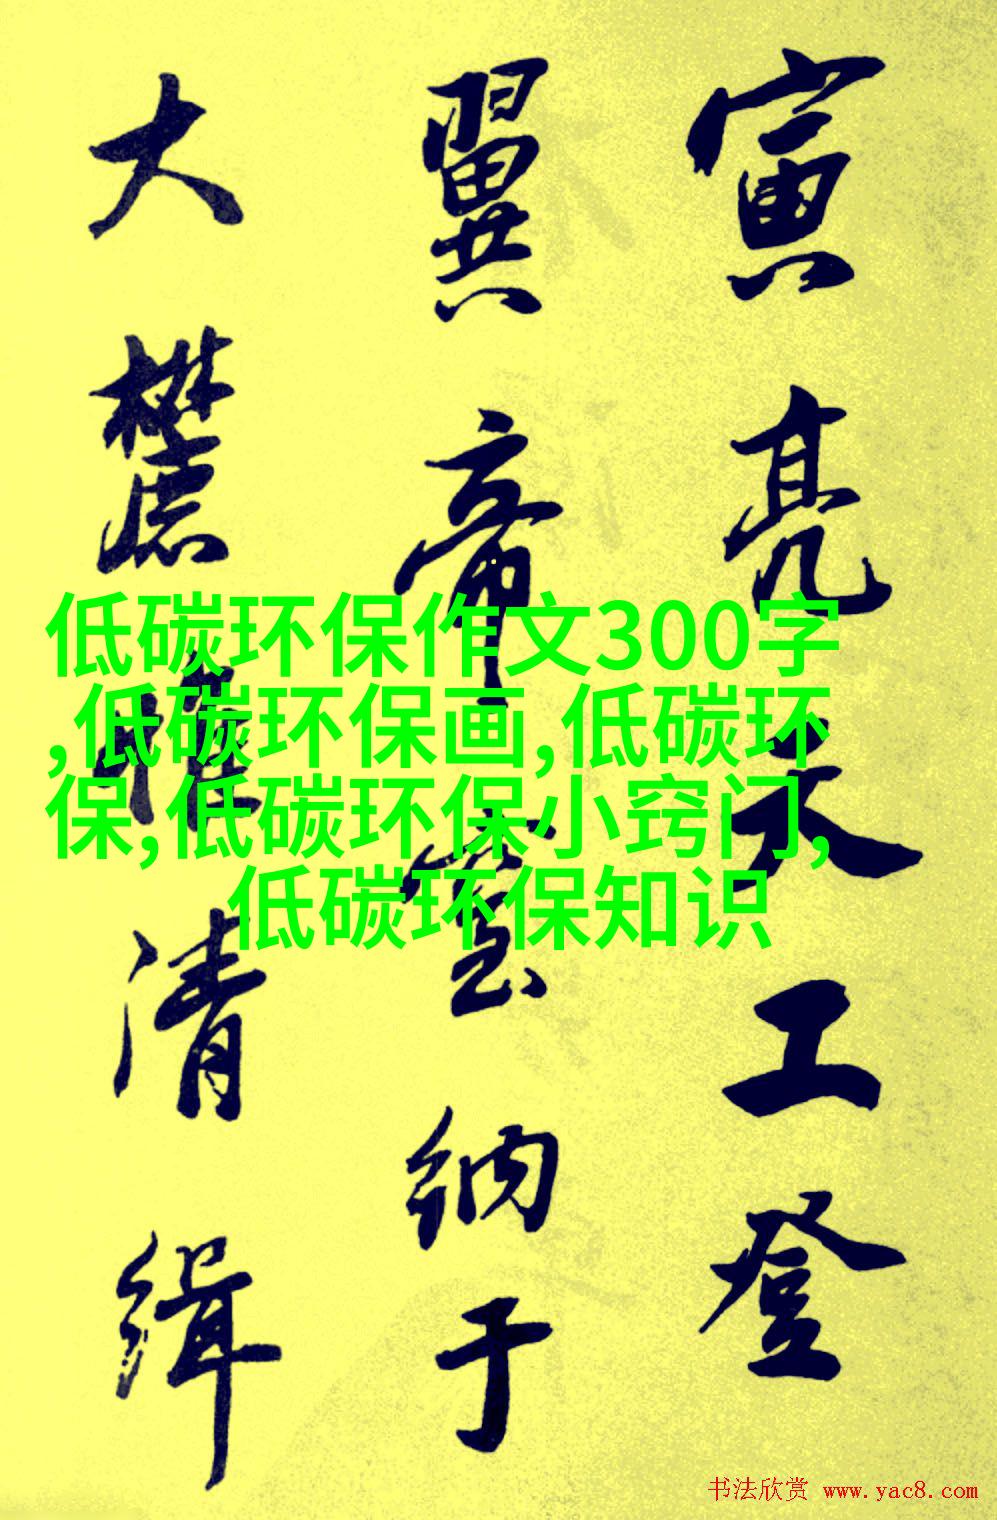 寅亮天工登
翼帝室納于
大麓惟清緝
低碳环保作文300字
,低碳环保画,低碳环
保,低碳环保小窍门,
低碳环保知识
书法欣赏 www.yac8.com